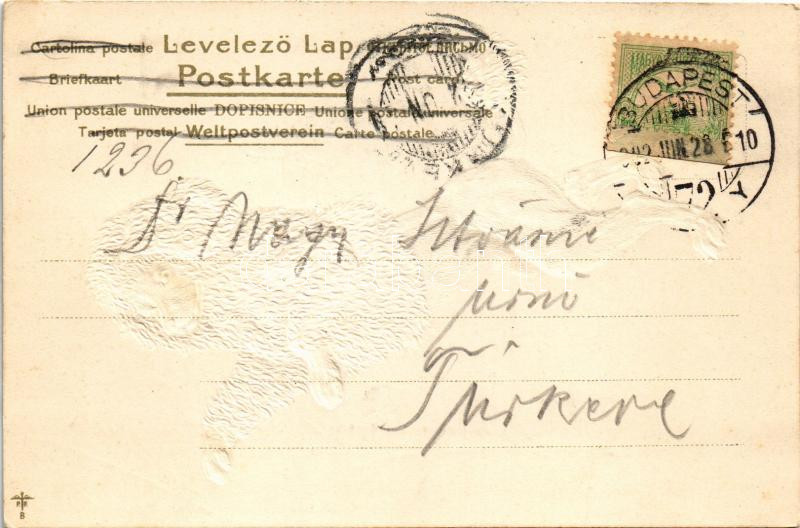 Cartolina postale Levelező Lap Открытое письмо
Briefkaart Postkarte Post card
Union postale universelle DOPISNICE Unione postale universale
Tarjeta postal Weltpostverein Carte postale
1236
Dr Nagy Istvánné
úrnő
Túrkeve
BUDAPEST
JUN 28
72
P. F.
B